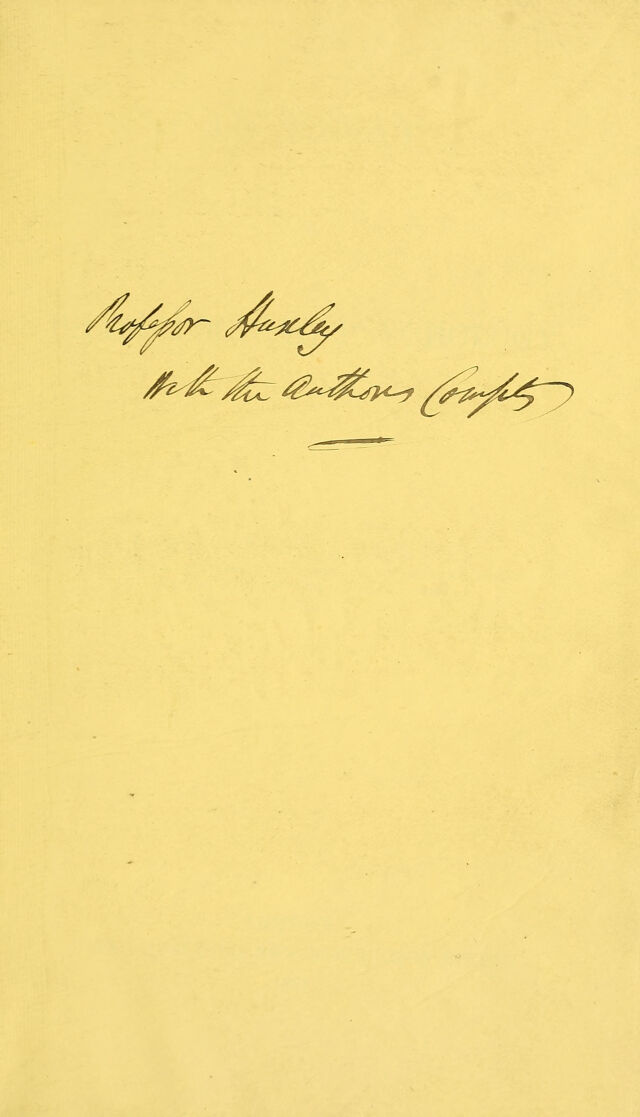 Professor Huxley
With the Authors Compts